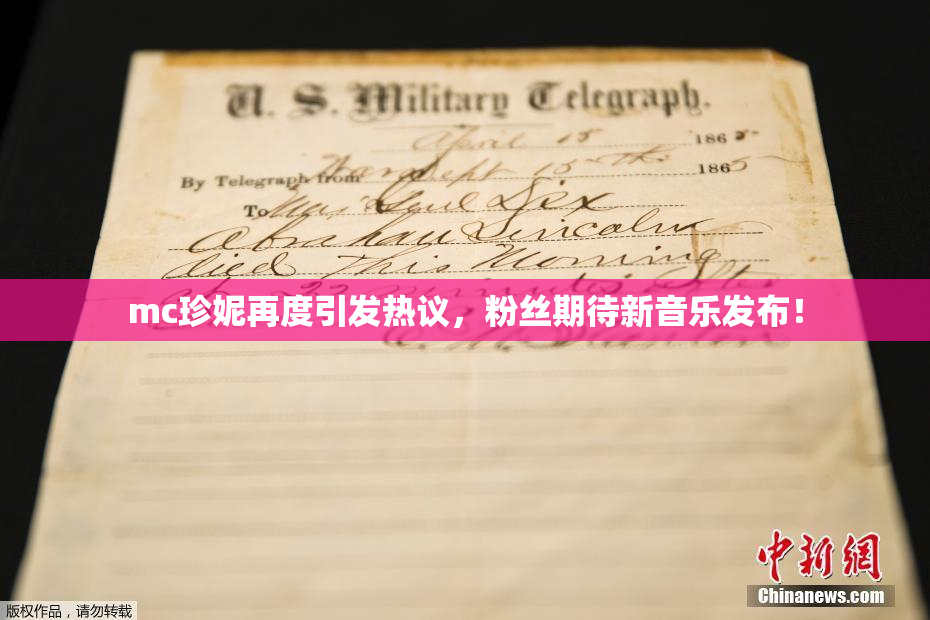 U. S. Military Telegraph.
April 15 1865
By Telegraph from War Dept 15th 1865
To Maj Genl Dix
Abraham Lincoln
died This Morning
at 22 minutes after
mc珍妮再度引发热议，粉丝期待新音乐发布！
中新网
Chinanews.com
版权作品，请勿转载